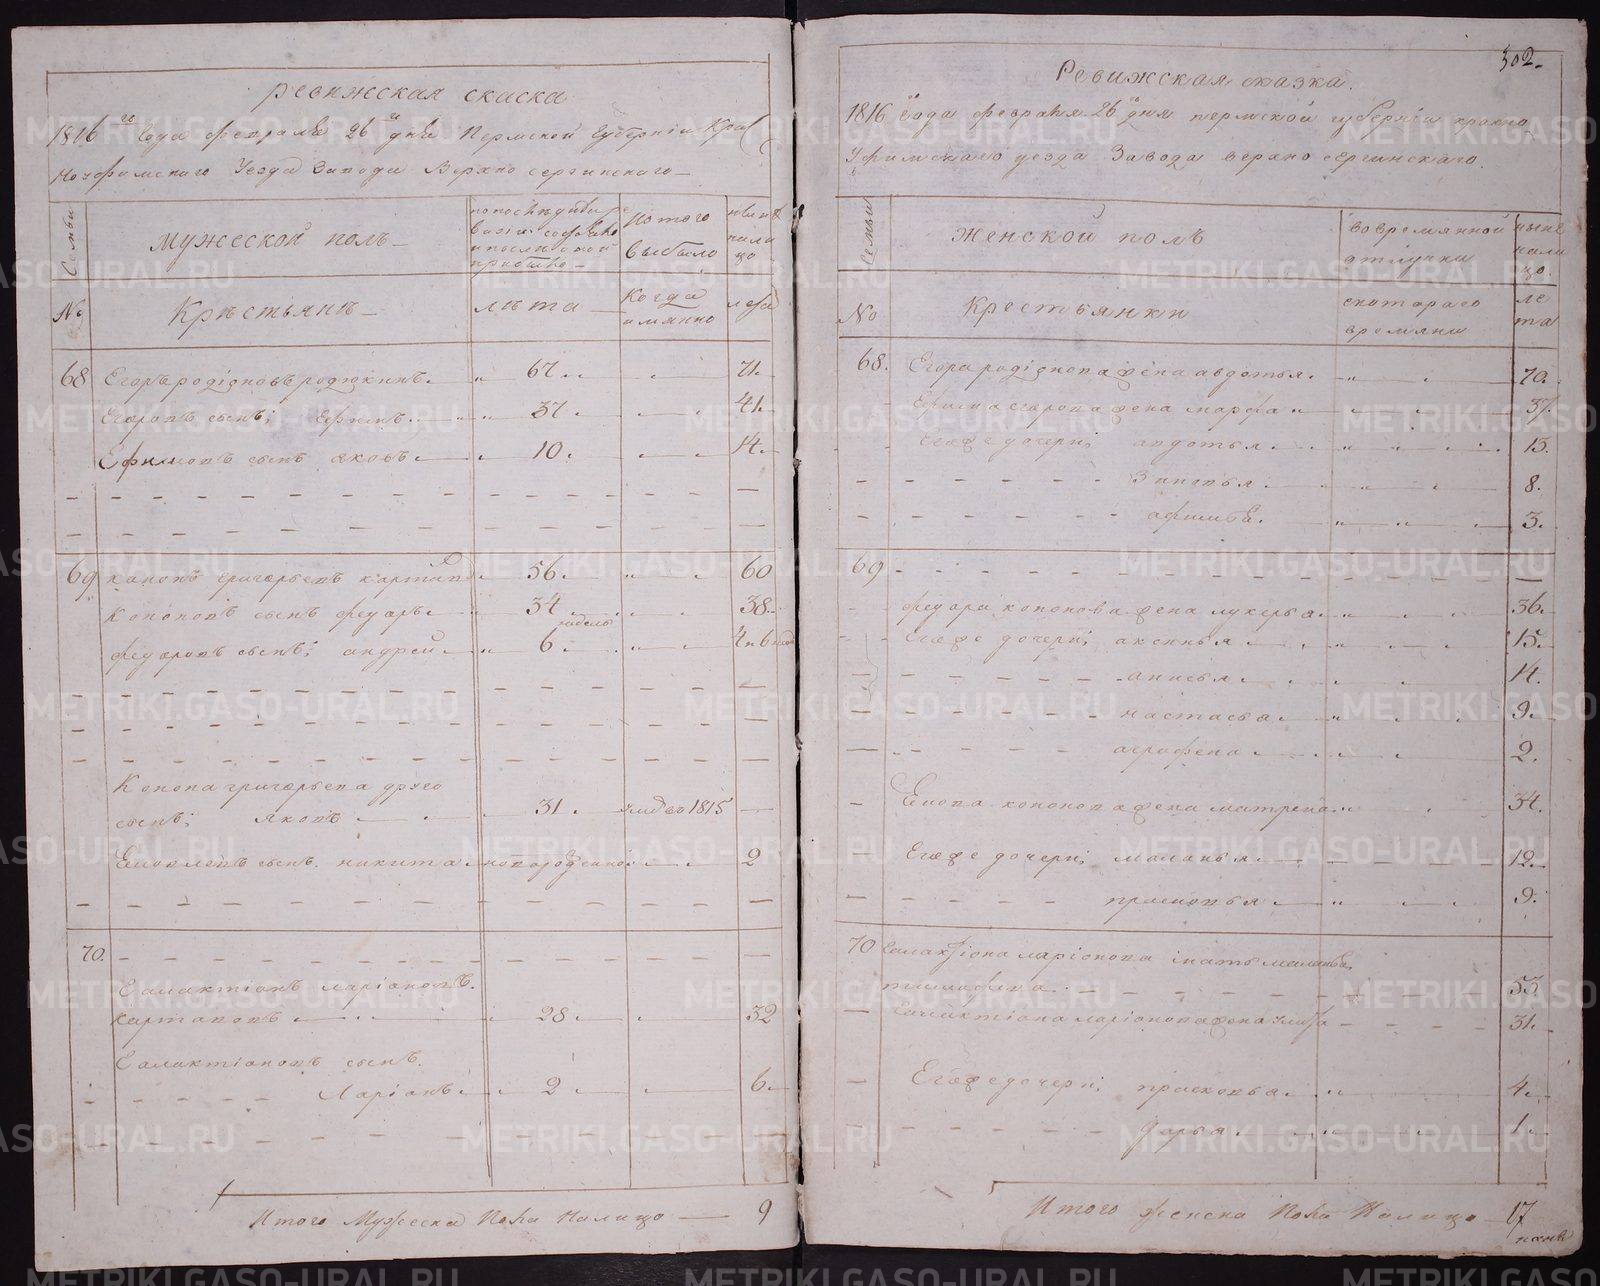 ревижская скаска
1816 го года февраля 26 дня Пермской Губернiи Крас
ноуфимскаго Уезда Завода Верхно сергинскаго
Семьи
мужеской полъ
по последней ре
визiи состояло
и после оной
прибыло
Изтого
выбыло
ныне
нали
цо
№
Крѣстьянѣ
лѣта
Когда
имянно
лета
68 Егоръ родiоновъ родюкинъ 67 71
Егоровъ сынъ; Ефимъ 37 41
Ефимовъ сынъ яковъ 10 14
69 кононъ григорьевъ картаповъ 56 60
Кононовъ сынъ федоръ 34 38
федоровъ сынъ; андрей 6 недель 4 и 6 нед
Конона григорьева другой
сынъ; яковъ 31 умд во 1815
сынъ никита новорожденной 2
70
Галактiонъ ларiоновъ
картаповъ 28 32
Галактiоновъ сынъ
Ларiонъ 2 6
Итого Мужеска Пола Налицо 9
302
Ревижская сказка
1816 года февраля 26 дня пермской губернiи красно
уфимскаго уезда Завода верхно сергинскаго
Семьи
Женской полъ
вовремянной
отлучки
ныне
нали
цо
№
Крестьянки
скотораго
времяни
ле
та
68 Егора родiонова жена авдотья 70
Ефима егорова жена марфа 37
Егоже дочери; авдотья 13
Зиновья 8
афимья 3
69
федора кононова жена лукерья 36
Егоже дочери; аксинья 15
анисья 14
настасья 9
аграфена 2
Якова кононова жена матрена 34
Егоже дочери; маланья 12
прасковья 9
70 Галактiона ларiонова мать маланья
53
Галактiона ларiонова жена улита 31
Егоже дочери; прасковья 4
дарья 1
Итого женска Пола Налицо 17
METRIKI.GASO-URAL.RU